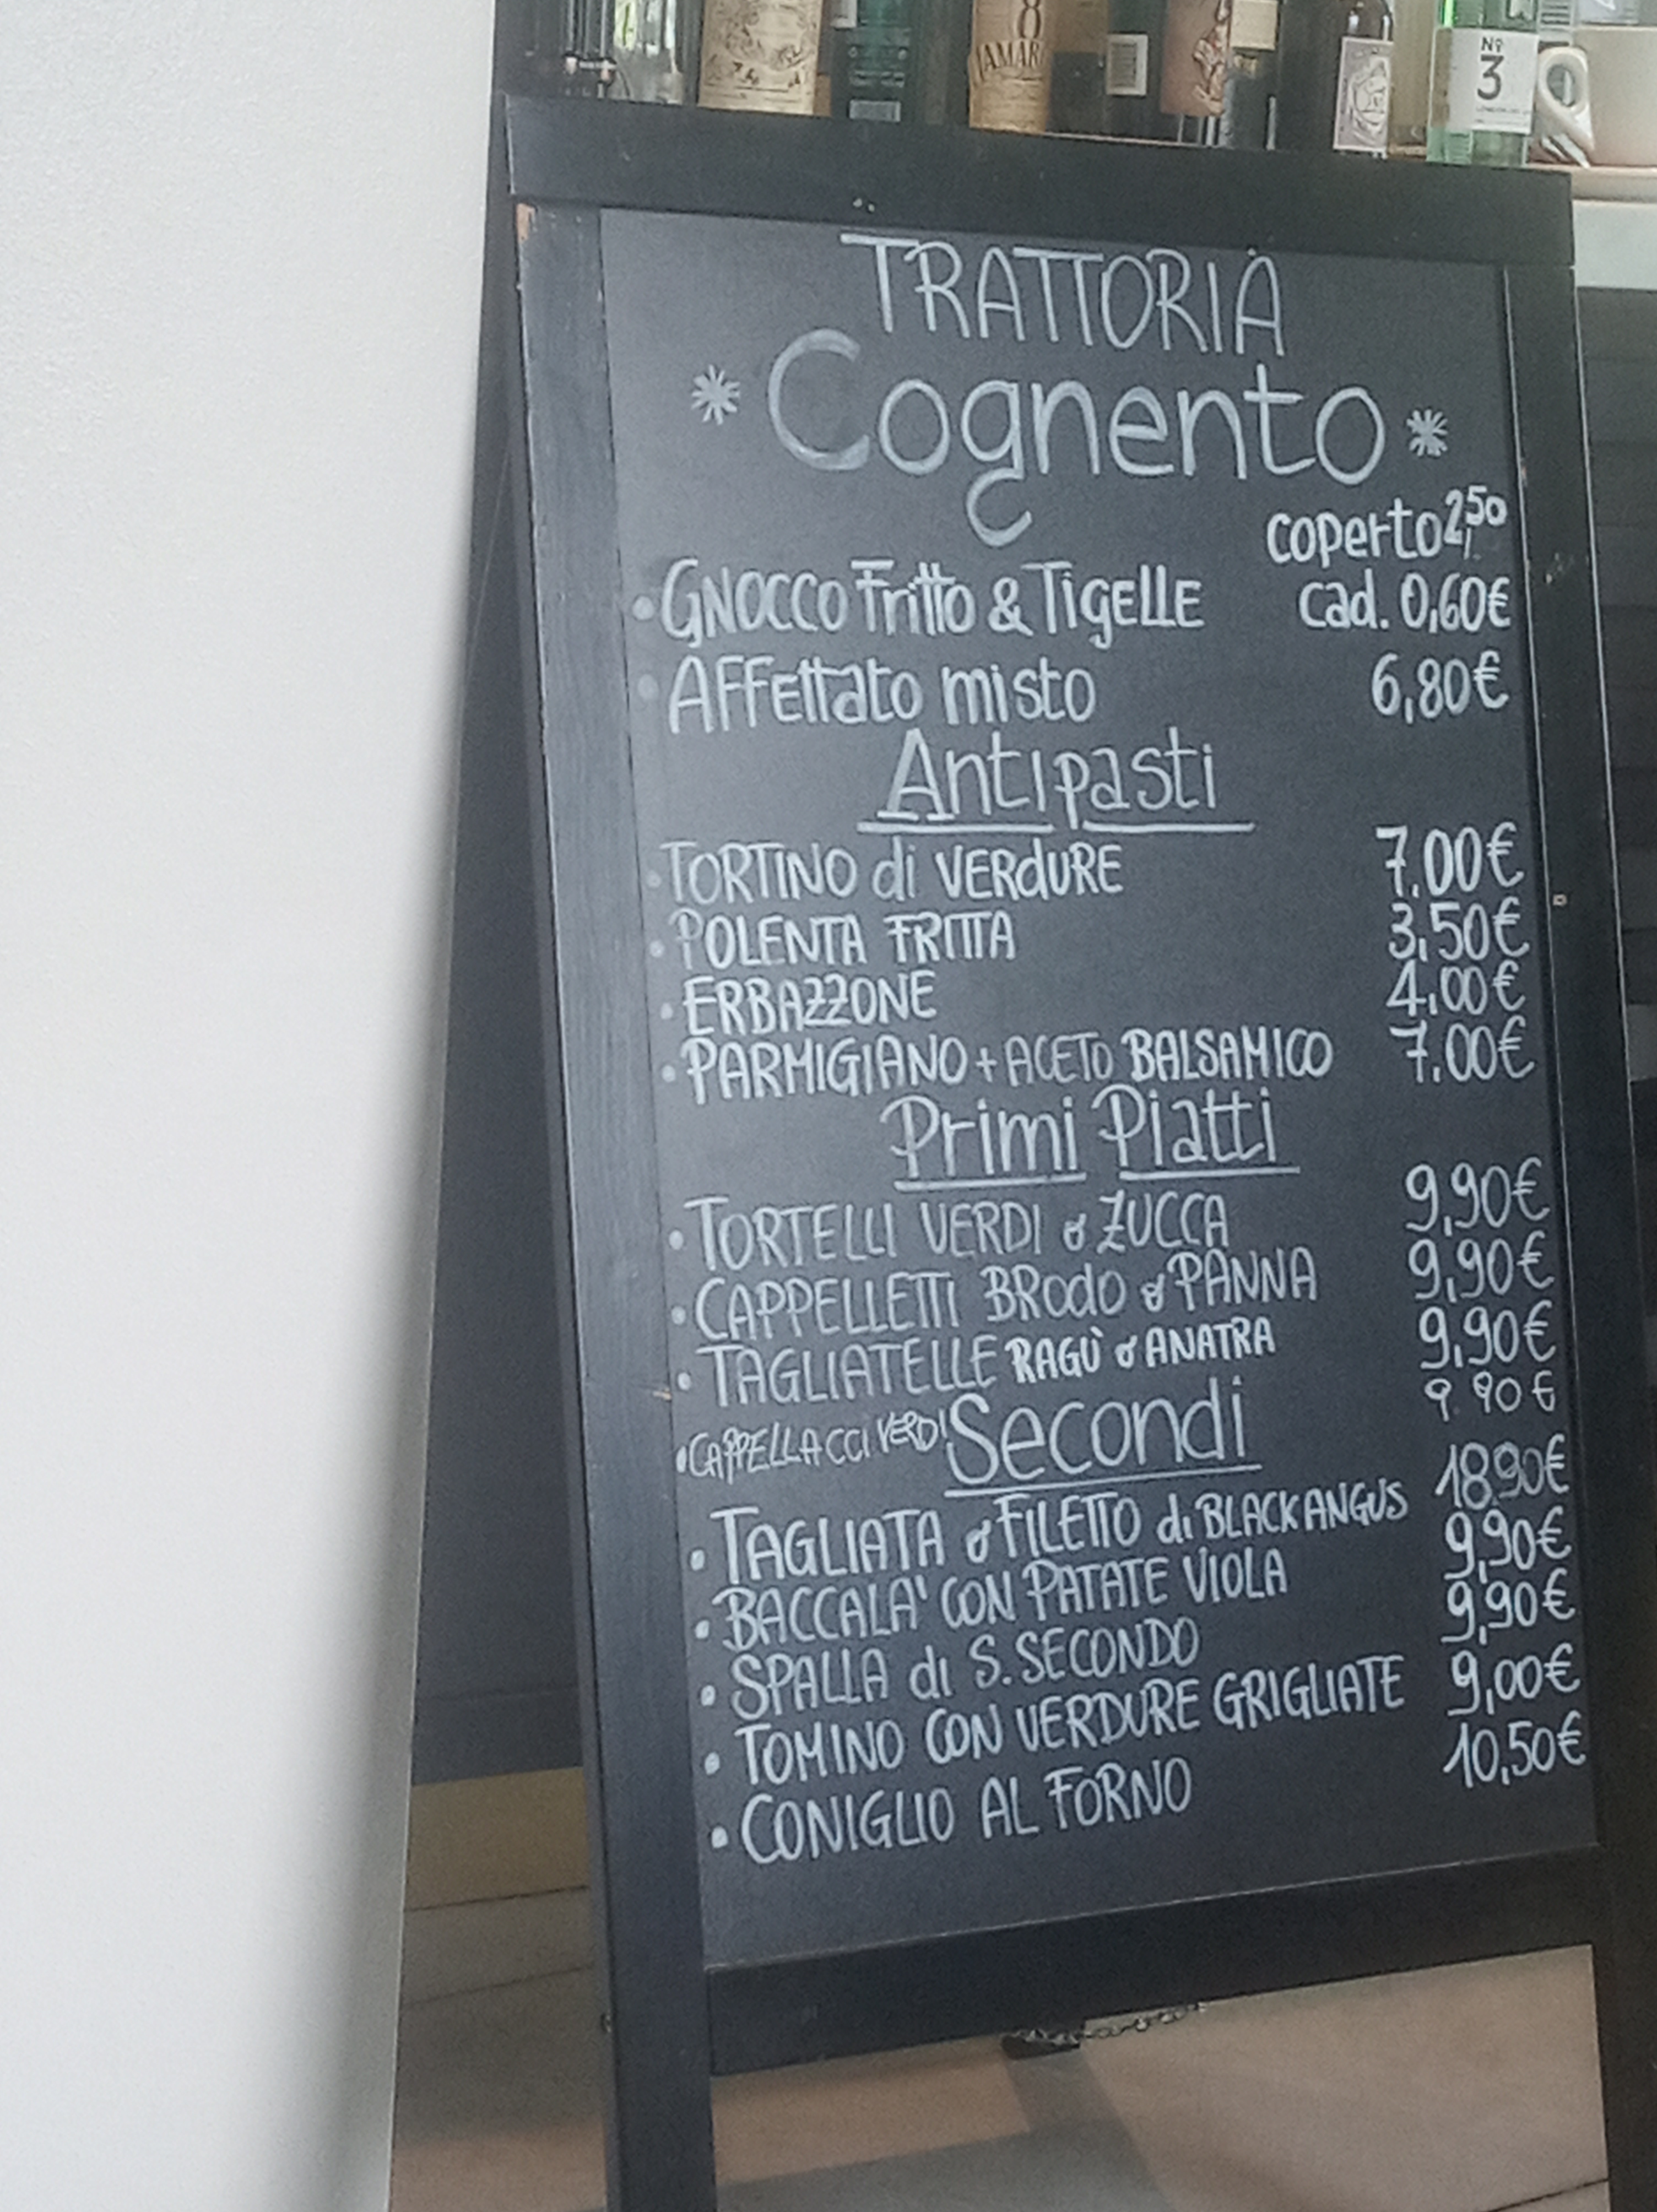 8
JAMAR
Nº
3
TRATTORIA
* Cognento *
coperto 2,50
• GNOCCO Fritto & TIGELLE cad. 0,60€
• AFFEttato misto 6,80€
Antipasti
• TORTINO di VERdURE 7.00€
• POLENTA FRITTA 3,50€
• ERBAZZONE 4,00€
• PARMIGIANO + ACETO BALSAMICO 7.00€
Primi Piatti
• TORTELLI VERDI o ZUCCA 9,90€
• CAPPELLETTI BRodO o PANNA 9,90€
• TAGLIATELLE RAGÙ o ANATRA 9,90€
• CAPPELLACCI VERDI 9 90€
Secondi
• TAGLIATA o FILETTO di BLACK ANGUS 18.90€
• BACCALA' CON PATATE VIOLA 9,90€
• SPALLA di S. SECONDO 9,90€
• TOMINO CON VERDURE GRIGLIATE 9,00€
• CONIGLIO AL FORNO 10,50€